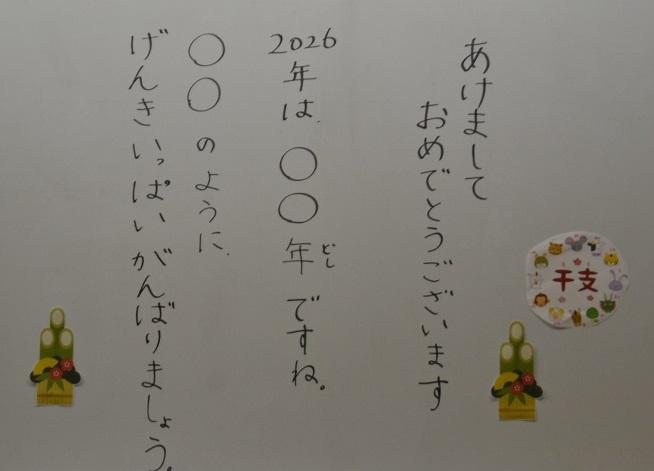 あけまして
おめでとうございます
2026年は、○○年どしですね。
○○のように、
げんきいっぱいがんばりましょう。
干支